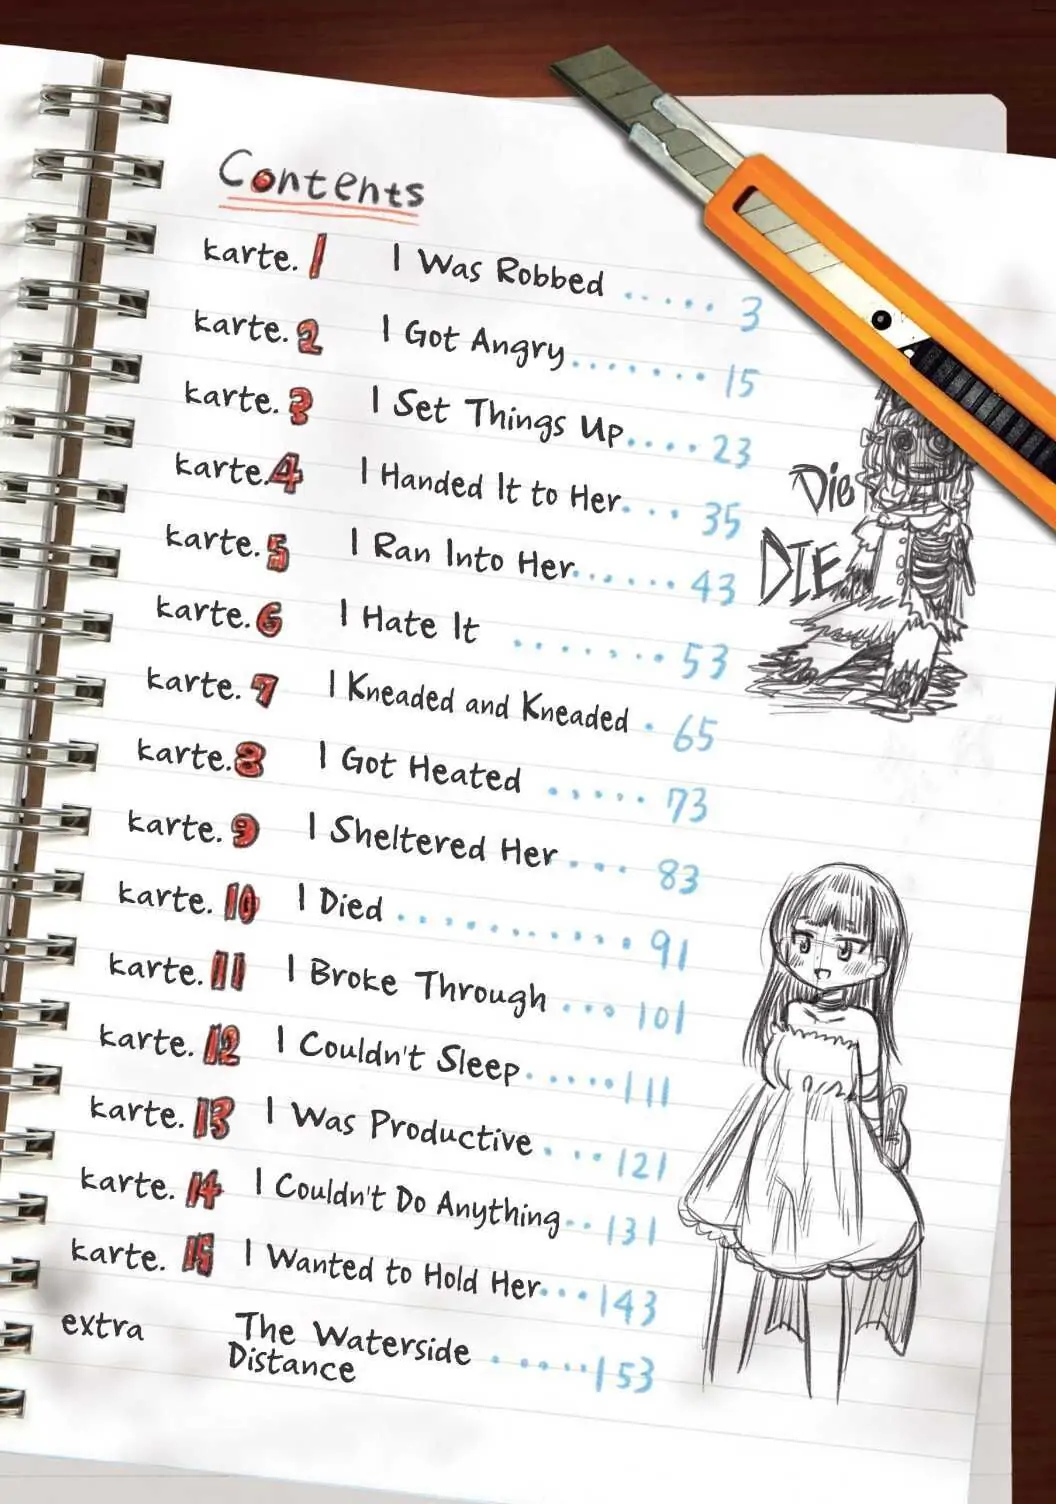 Contents
karte. 1 I Was Robbed ..... 3
karte. 2 I Got Angry ....... 15
karte. 3 I Set Things Up .... 23
karte. 4 I Handed It to Her ... 35
karte. 5 I Ran Into Her ...... 43
karte. 6 I Hate It ....... 53
karte. 7 I Kneaded and Kneaded . 65
karte. 8 I Got Heated ..... 73
karte. 9 I Sheltered Her ... 83
karte. 10 I Died ........... 91
karte. 11 I Broke Through ... 101
karte. 12 I Couldn't Sleep ..... 111
karte. 13 I Was Productive ... 121
karte. 14 I Couldn't Do Anything .. 131
karte. 15 I Wanted to Hold Her ... 143
extra The Waterside
Distance ..... 153
Die
DIE